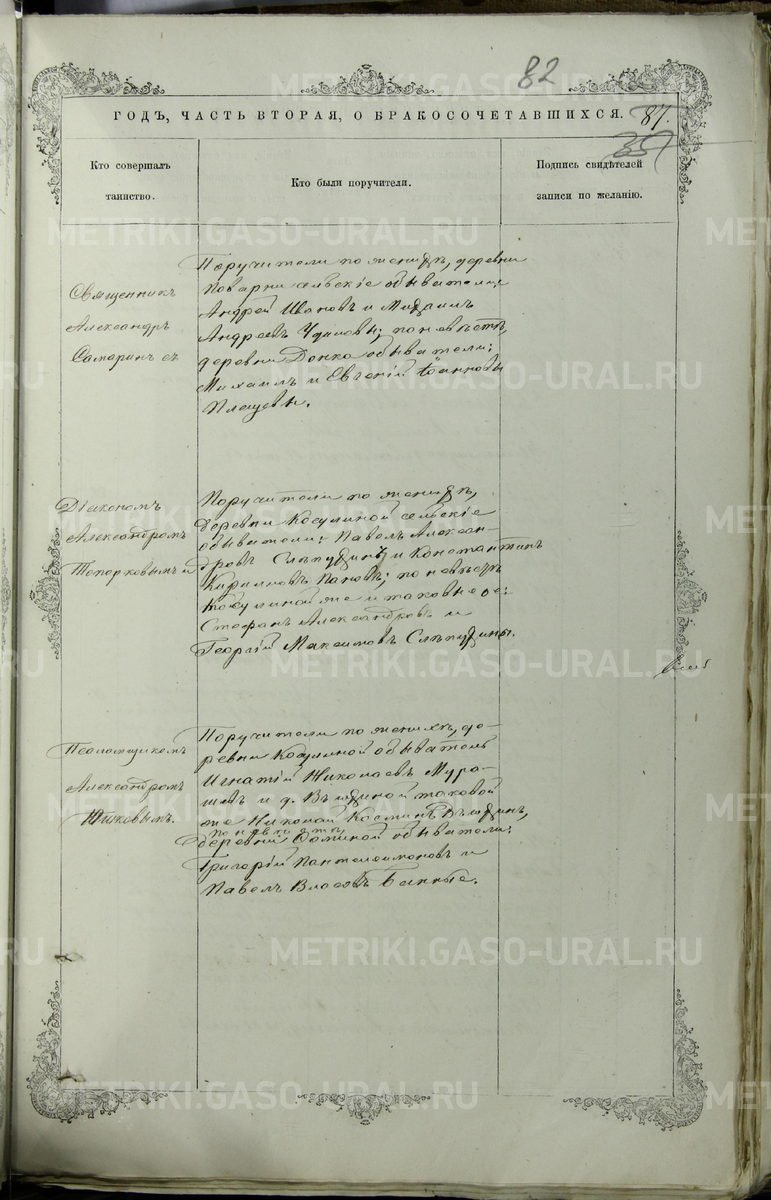 82
ГОДЪ, ЧАСТЬ ВТОРАЯ, О БРАКОСОЧЕТАВШИХСЯ.
87.
Кто совершалъ
таинство.
Кто были поручители.
Подпись свидѣтелей
записи по желанію.
Священникъ
Александръ
Самаринъ съ
Поручители по женихѣ, деревни
сельскіе обыватели
Андрей Ивановъ и Михаилъ
Андреевъ по невѣстѣ,
деревни обыватели:
Михаилъ и Евгеній Іоанновы
Плещевы.
Діакономъ
Александромъ
Топорковымъ и
Поручители по женихѣ,
деревни Косулиной сельскіе
обыватели: Павелъ Алексан-
дровъ Слѣпухинъ и Константинъ
Кириловъ Пановъ; по невѣстѣ
Косулиной же и таковые же:
Стефанъ Александровъ и
Георгій Максимовъ Слѣпухины.
Псаломщикомъ
Александромъ
Поручители по женихѣ, де-
ревни Косулиной обыватель
Игнатій Николаевъ Мура-
шевъ и д. таковой
же Николай Косминъ
по невѣстѣ
деревни обыватели:
Григорій Пантелеимоновъ и
Павелъ Власовъ Банные.
METRIKI.GASO-URAL.RU